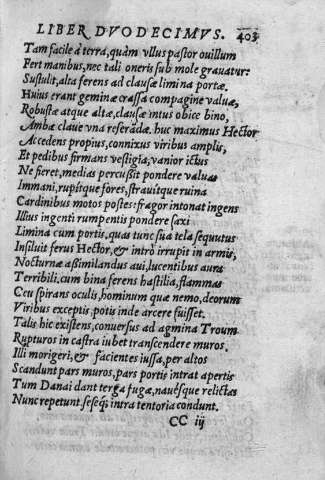 LIBER DVODECIMVS. 403
Tam facile à terra, quàm vllus pastor ouillum
Fert manibus, nec tali oneris sub mole grauatur:
Sustulit, alta ferens ad clausæ limina portæ.
Huius erant geminæ crassa compagine valuæ,
Robustæ atque altæ, clausæ intus obice bino,
Ambæ claue vna reseradæ. huc maximus Hector
Accedens propius, connixus viribus amplis,
Et pedibus firmans vestigia, vanior ictus
Ne fieret, medias percussit pondere valuas
Immani, rupítque fores, strauítque ruina
Cardinibus motos postes: fragor intonat ingens
Illius ingenti rumpentis pondere saxi
Limina cum portis, quas tunc sua tela sequutus
Insiluit ferus Hector, & intrò irrupit in armis,
Nocturnæ aßimilandus aui, lucentibus æra
Terribili, cum bina ferens hastilia, flammas
Ceu spirans oculis, hominum quæ nemo, deorum
Viribus exceptis, potis inde arcere fuisset.
Talis hic existens, conuersus ad agmina Troum
Rupturos in castra iubet transcendere muros.
Illi morigeri, & facientes iussa, per altos
Scandunt pars muros, pars portis intrat apertis
Tum Danai dant terga fugæ, nauésque relictas
Nunc repetunt, seseq; intra tentoria condunt.
CC iij